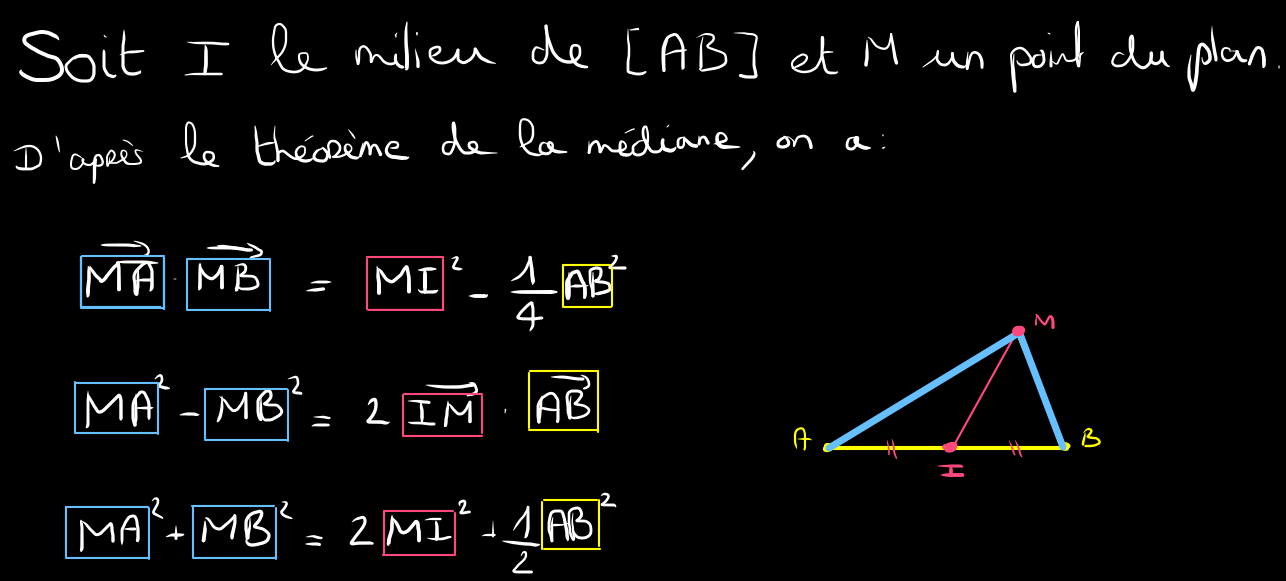 Soit I le milieu de [AB] et M un point du plan.
D'après le théorème de la médiane, on a :
$\overrightarrow{MA} \cdot \overrightarrow{MB} = MI^2 - \frac{1}{4} AB^2$
$MA^2 - MB^2 = 2 \overrightarrow{IM} \cdot \overrightarrow{AB}$
$MA^2 + MB^2 = 2 MI^2 + \frac{1}{2} AB^2$
M
A
B
I